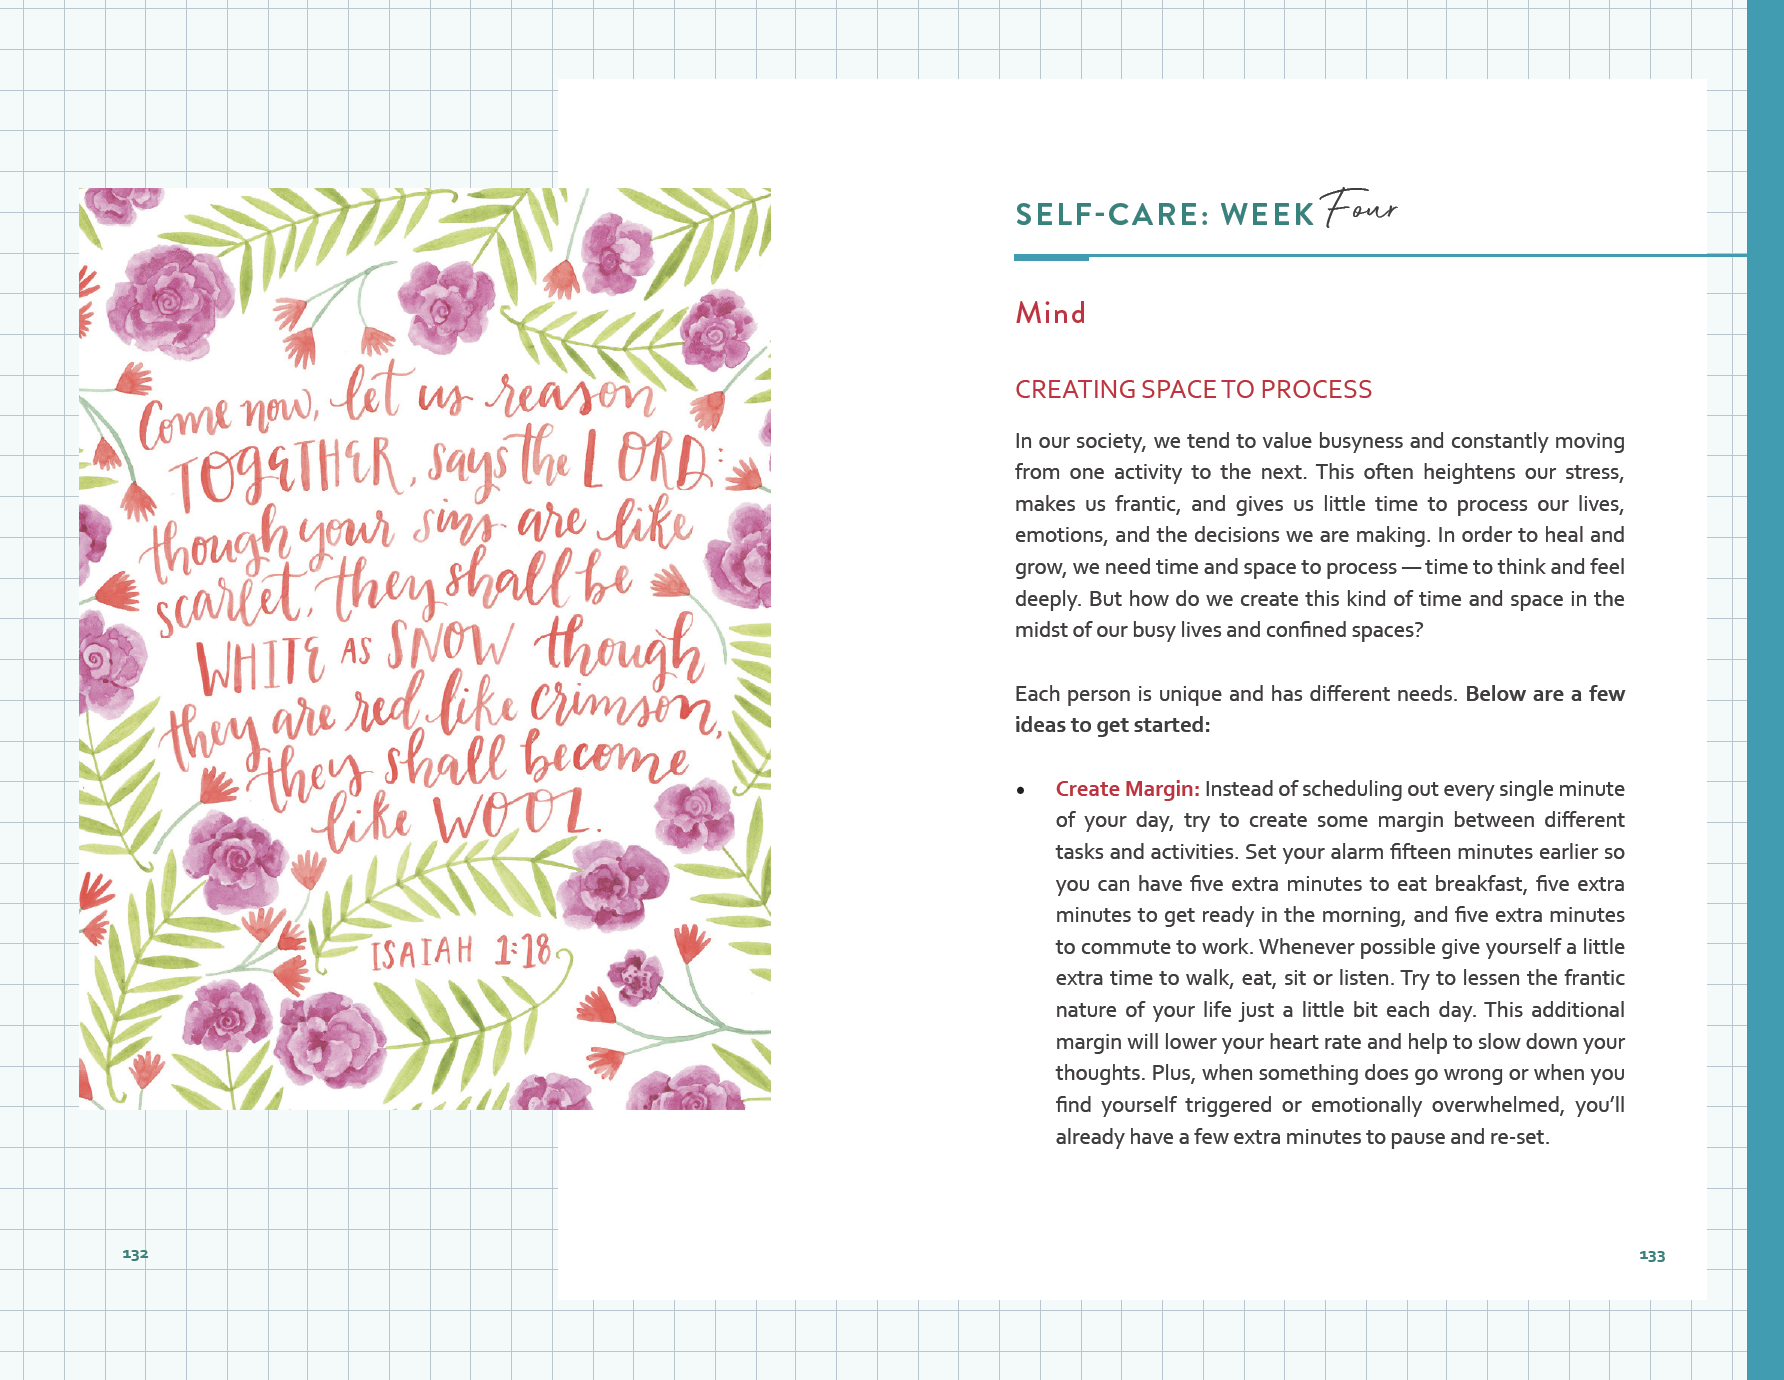 Come now, let us reason
TOGETHER, says the LORD:
though your sins are like
scarlet, they shall be
WHITE AS SNOW though
they are red like crimson,
they shall become
like WOOL.
ISAIAH 1:18
132
SELF-CARE: WEEK Four
Mind
CREATING SPACE TO PROCESS
In our society, we tend to value busyness and constantly moving
from one activity to the next. This often heightens our stress,
makes us frantic, and gives us little time to process our lives,
emotions, and the decisions we are making. In order to heal and
grow, we need time and space to process — time to think and feel
deeply. But how do we create this kind of time and space in the
midst of our busy lives and confined spaces?
Each person is unique and has different needs. Below are a few
ideas to get started:
• Create Margin: Instead of scheduling out every single minute
of your day, try to create some margin between different
tasks and activities. Set your alarm fifteen minutes earlier so
you can have five extra minutes to eat breakfast, five extra
minutes to get ready in the morning, and five extra minutes
to commute to work. Whenever possible give yourself a little
extra time to walk, eat, sit or listen. Try to lessen the frantic
nature of your life just a little bit each day. This additional
margin will lower your heart rate and help to slow down your
thoughts. Plus, when something does go wrong or when you
find yourself triggered or emotionally overwhelmed, you’ll
already have a few extra minutes to pause and re-set.
133